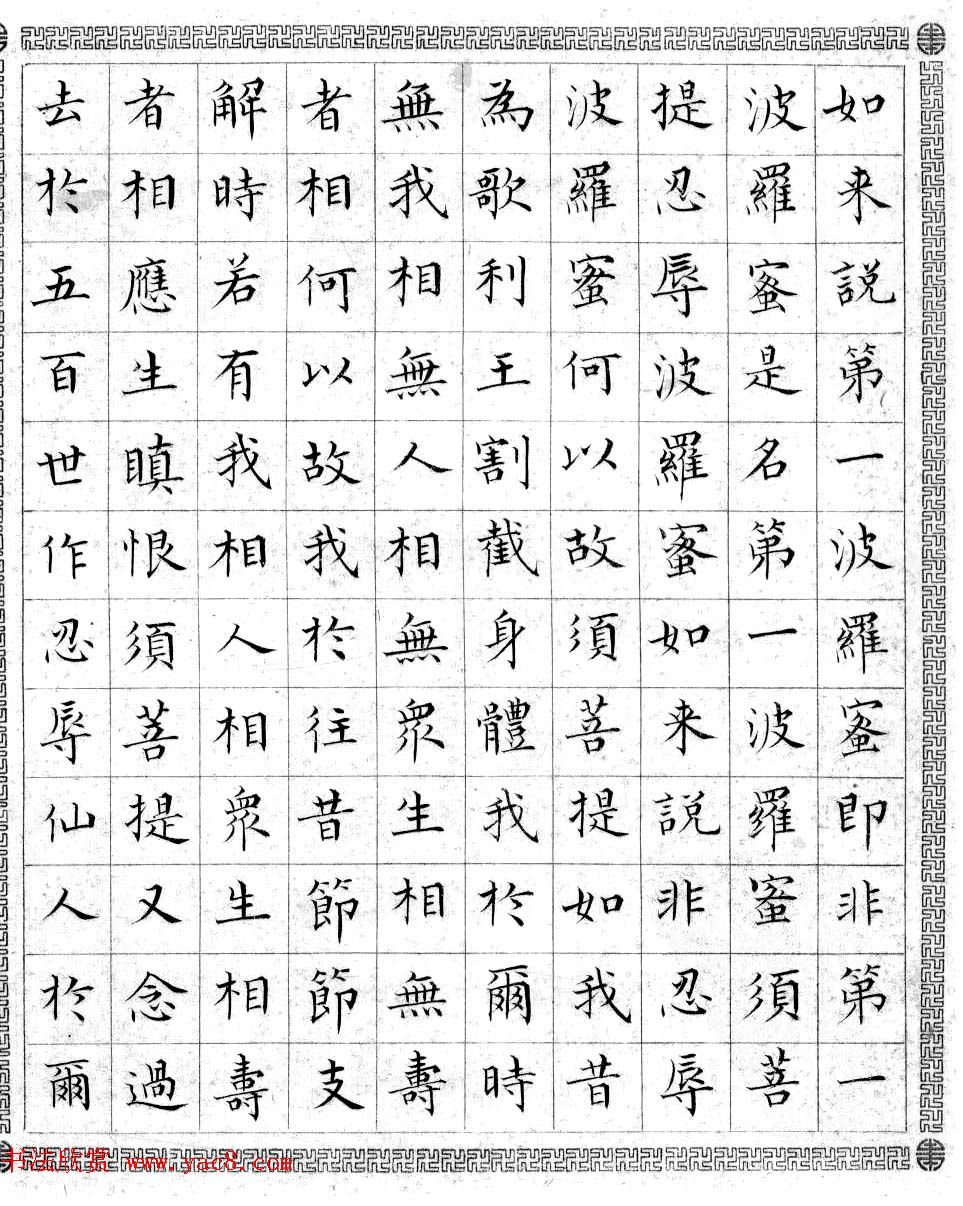 如来説第一波羅蜜即非第一
波羅蜜是名第一波羅蜜須菩
提忍辱波羅蜜如来説非忍辱
波羅蜜何以故須菩提如我昔
為歌利王割截身體我於爾時
無我相無人相無衆生相無壽
者相何以故我於往昔節節支
解時若有我相人相衆生相壽
者相應生瞋恨須菩提又念過
去於五百世作忍辱仙人於爾
书法欣赏 www.yac8.com